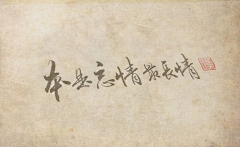 本是忘情最長情